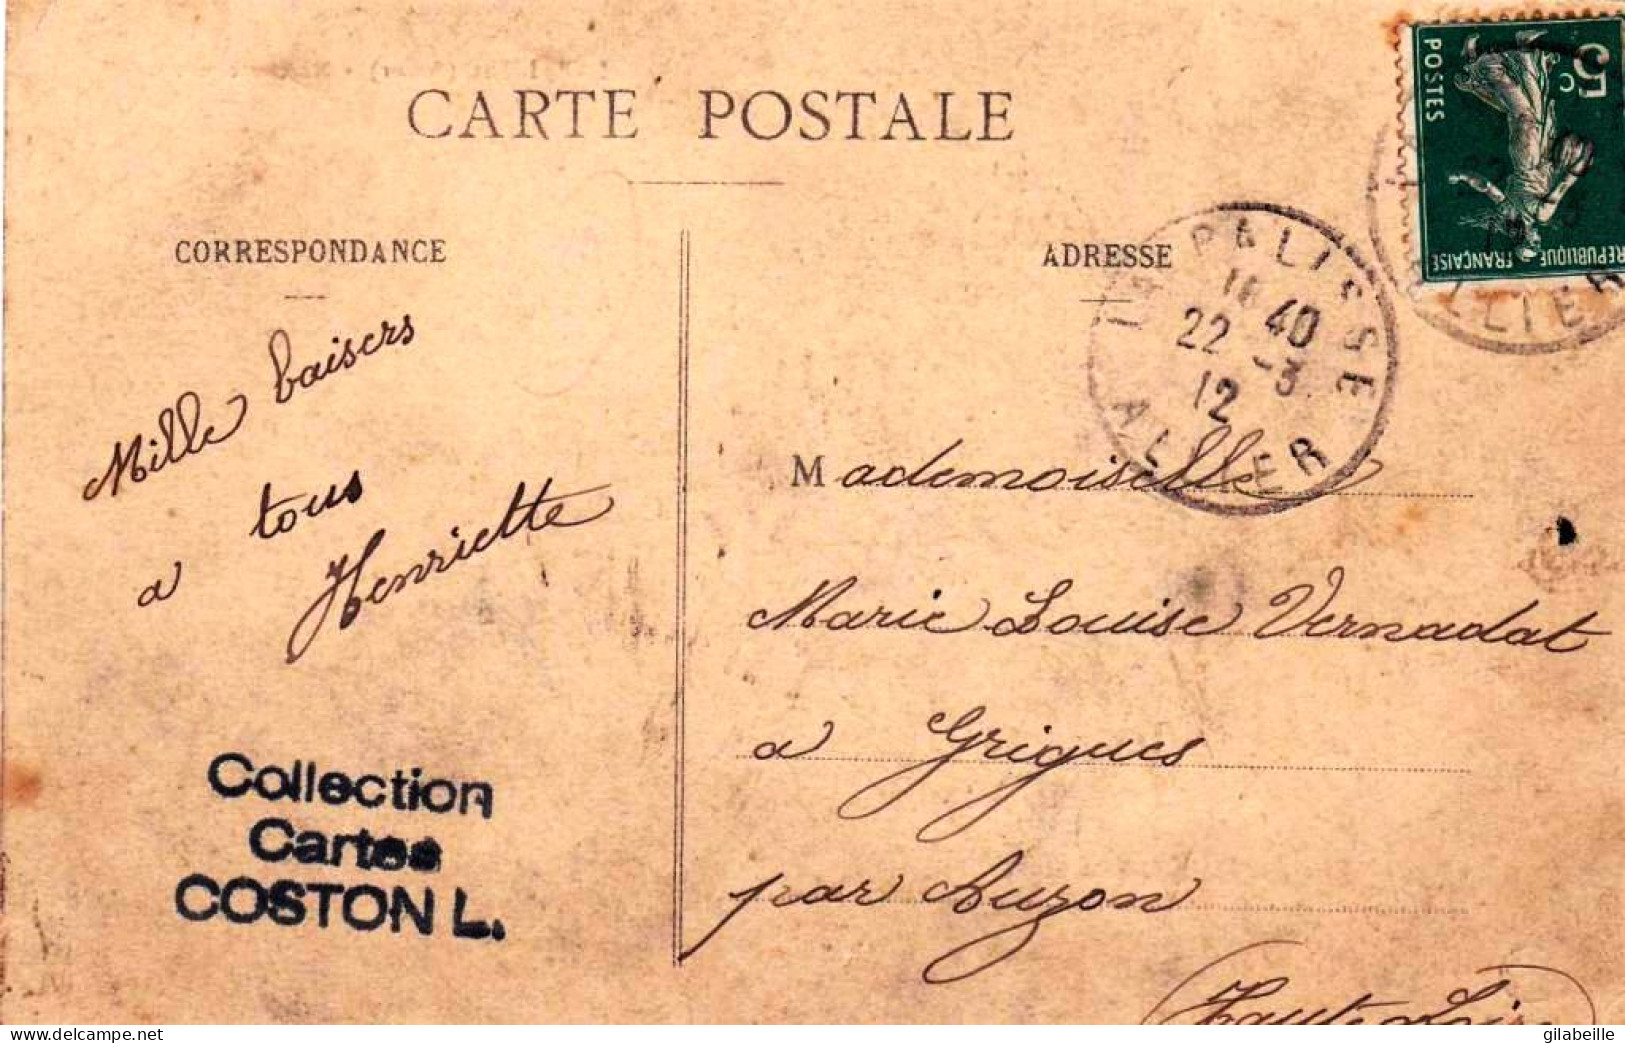 CARTE POSTALE
CORRESPONDANCE
ADRESSE
Mille baisers
a tous
Henriette
Mademoiselle
Marie Louise Vernadat
a Grigues
par Auzon
Haute Loire
Collection
Cartes
COSTON L.
LAPALISSE
22 -3
12
ALLIER
POSTES
5 c
REPUBLIQUE FRANÇAISE
ALLIER
www.delcampe.net
gilabeille